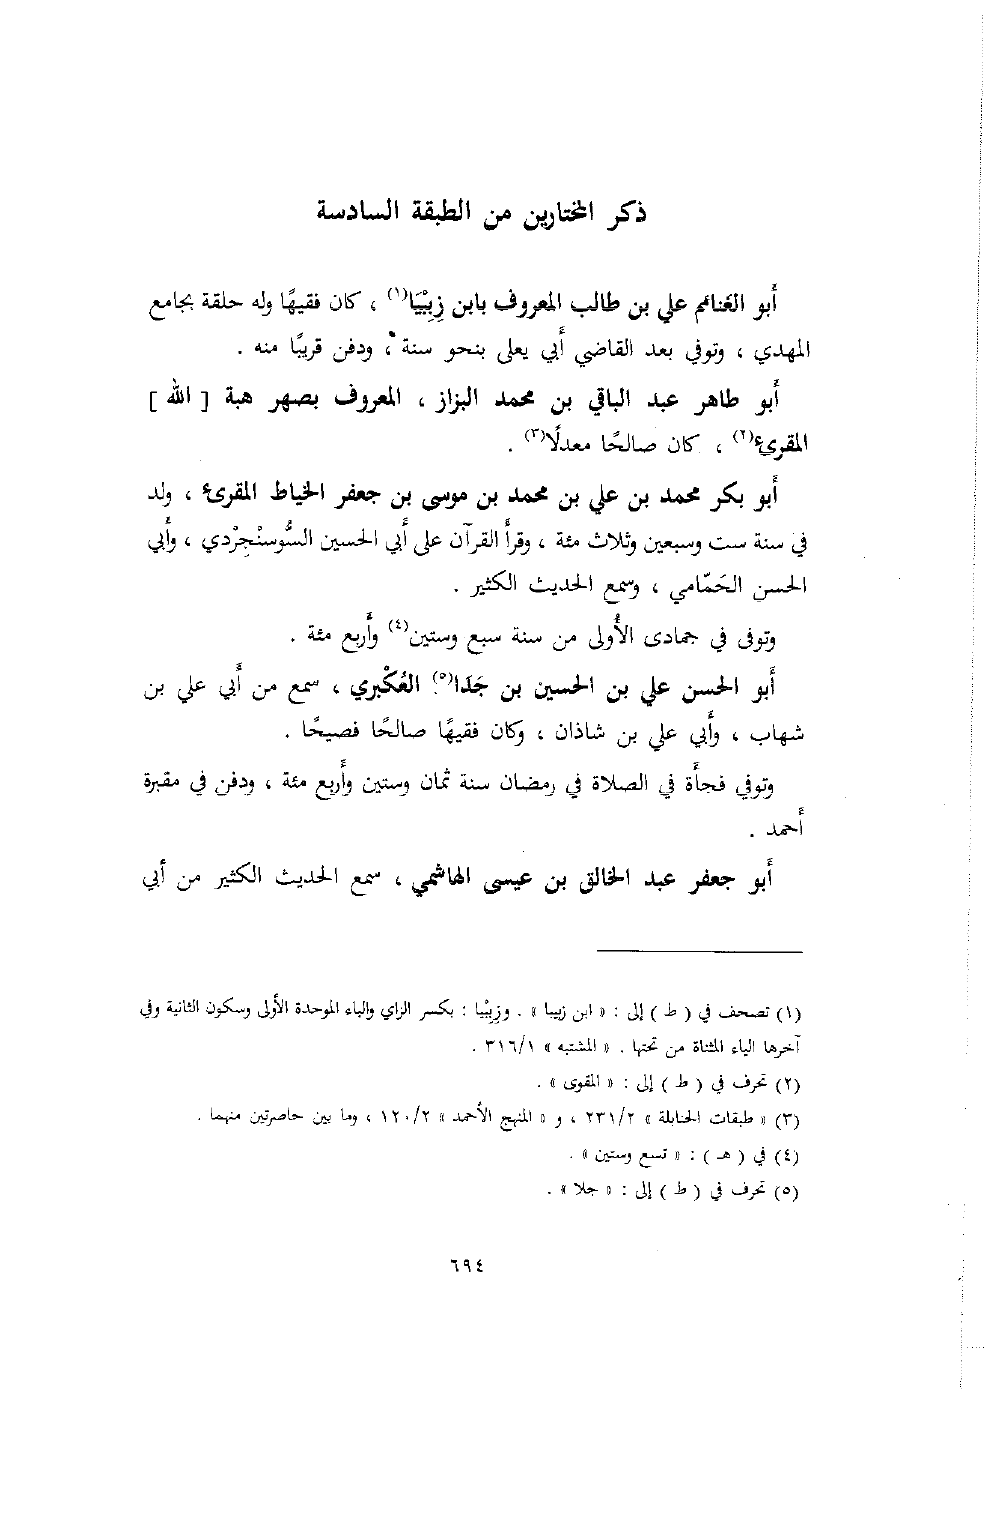 ذكر المختارين من الطبقة السادسة
أبو الغنائم علي بن طالب المعروف بابن زِبِبْيَا(١) ، كان فقيهًا وله حلقة بجامع
المهدي ، وتوفي بعد القاضي أبي يعلى بنحو سنة ، ودفن قريبًا منه .
أبو طاهر عبد الباقي بن محمد البزاز ، المعروف بصهر هبة [ الله ]
المقرئ(٢) ، كان صالحًا معدلًا(٣) .
أبو بكر محمد بن علي بن محمد بن موسى بن جعفر الخياط المقرئ ، ولد
في سنة ست وسبعين وثلاث مئة ، وقرأ القرآن على أبي الحسين السُّوسنْجِرْدي ، وأبي
الحسن الحَمّامي ، وسمع الحديث الكثير .
وتوفى في جمادى الأُولى من سنة سبع وستين(٤) وأربع مئة .
أبو الحسن علي بن الحسين بن جَدَا(٥) العُكْبري ، سمع من أبي علي بن
شهاب ، وأبي علي بن شاذان ، وكان فقيهًا صالحًا فصيحًا .
وتوفي فجأة في الصلاة في رمضان سنة ثمان وستين وأربع مئة ، ودفن في مقبرة
أحمد .
أبو جعفر عبد الخالق بن عيسى الهاشمي ، سمع الحديث الكثير من أبي
(١) تصحف في ( ط ) إلى : « ابن زبيبا » . وزِبِبْيا : بكسر الزاي والباء الموحدة الأولى وسكون الثانية وفي
آخرها الياء المثناة من تحتها . « المشتبه » ٣١٦/١ .
(٢) تحرف في ( ط ) إلى : « المقوى » .
(٣) « طبقات الحنابلة » ٢٣١/٢ ، و « المنهج الأحمد » ١٢٠/٢ ، وما بين حاصرتين منهما .
(٤) في ( هـ ) : « تسع وستين » .
(٥) تحرف في ( ط ) إلى : « جلا » .
٦٩٤